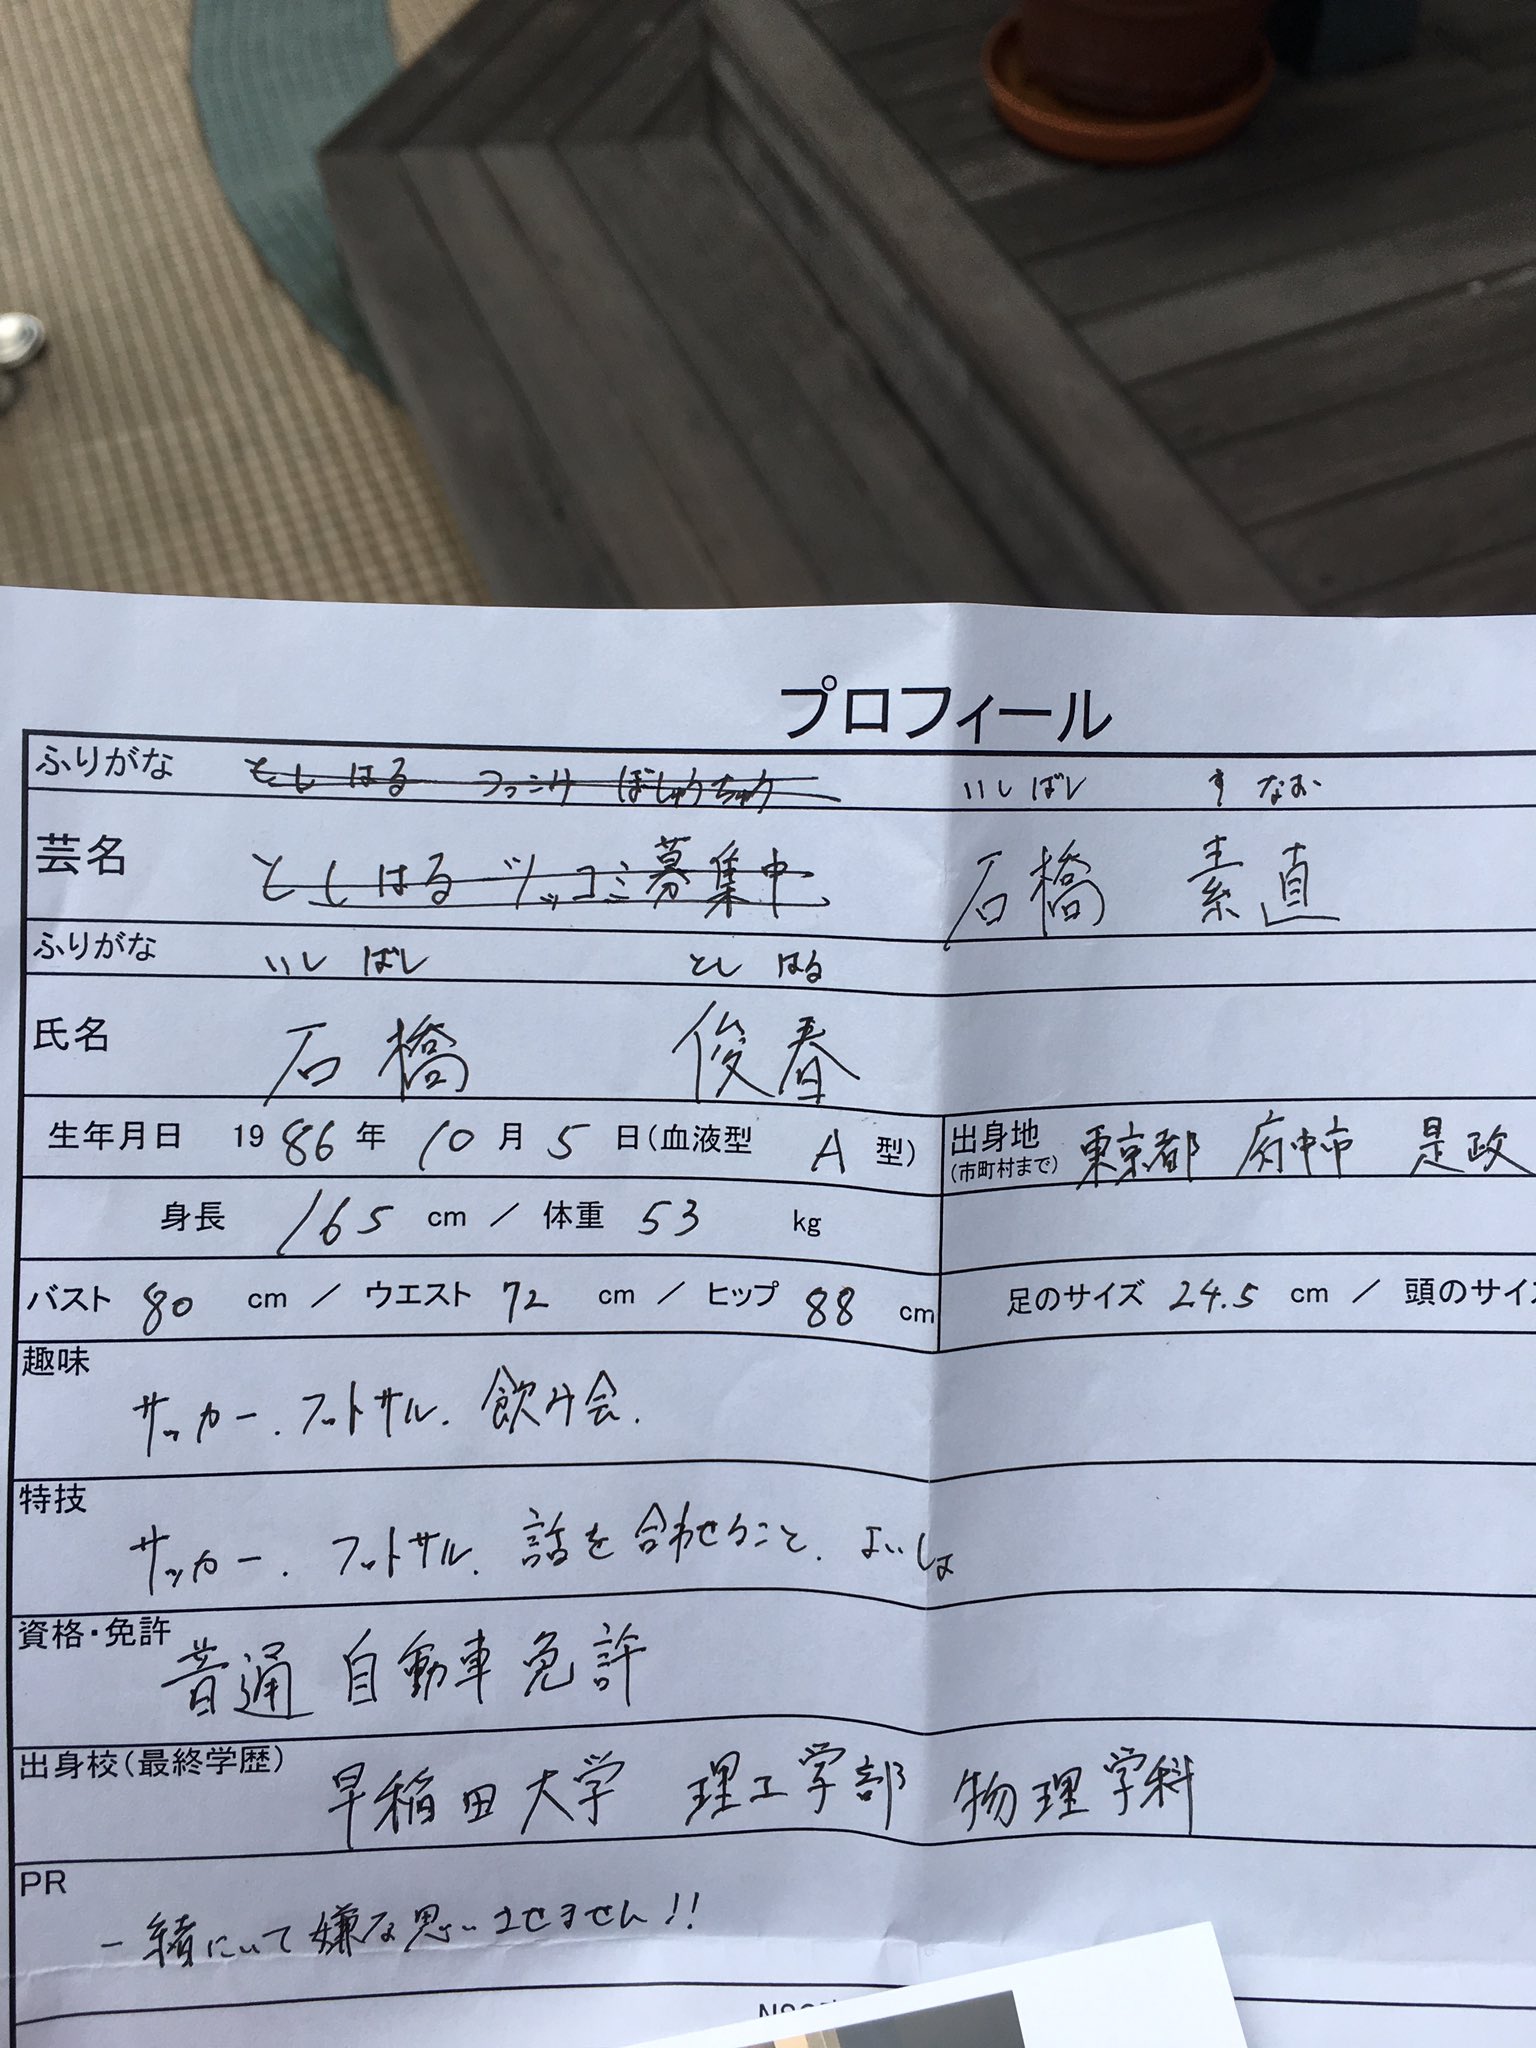 プロフィール
ふりがな とし はる つっこみ ぼしゅうちゅう いしばし すなお
芸名 としはるツッコミ募集中 石橋 素直
ふりがな いしばし としはる
氏名 石橋 俊春
生年月日 1986年 10月 5日(血液型 A 型) 出身地 東京都 府中市 是政
(市町村まで)
身長 165 cm / 体重 53 kg
バスト 80 cm / ウエスト 72 cm / ヒップ 88 cm 足のサイズ 24.5 cm / 頭のサイ
趣味
サッカー、フットサル、飲み会。
特技
サッカー、フットサル、話を合わせること、よいしょ
資格・免許
普通自動車免許
出身校(最終学歴) 早稲田大学 理工学部 物理学科
PR
一緒にいて嫌な思いさせません!!